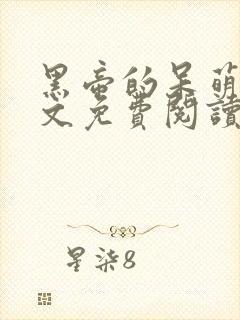 黑帝的呆萌
文免費閱讀
星柒8